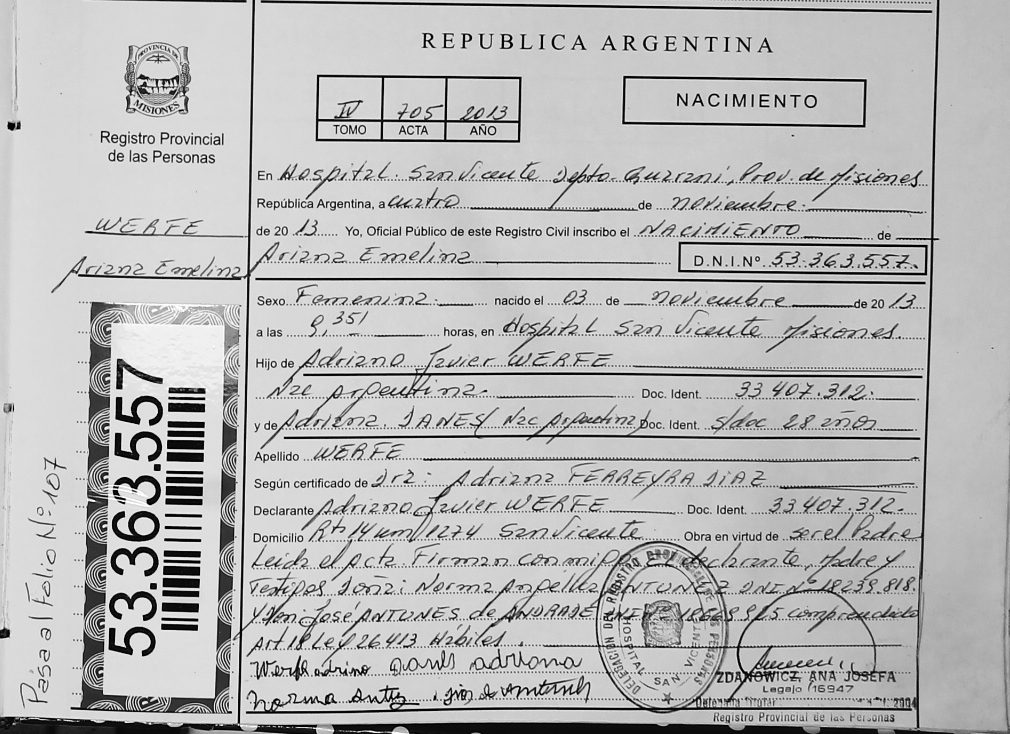 REPUBLICA ARGENTINA
PROVINCIA DE
MISIONES
Registro Provincial
de las Personas
IV 705 2013
TOMO ACTA AÑO
NACIMIENTO
WERFE
Ariana Emelina
53.363.557
Pasa al Folio Nº 107
En Hospital San Vicente Depto. Guarani, Prov. de Misiones
República Argentina, a cuatro de noviembre.
de 2013. Yo, Oficial Público de este Registro Civil inscribo el NACIMIENTO de
Ariana Emelina D.N.I.Nº 53.363.557.
Sexo Femenina. nacido el 03 de noviembre de 2013
a las 9,35 horas, en Hospital San Vicente Misiones.
Hijo de Adriano Javier WERFE
Nac argentina. Doc. Ident. 33 407.312.
y de Adriana. JANES (Nac argentina) Doc. Ident. s/doc 28 años
Apellido WERFE
Según certificado de Dra: Adriana FERREYRA DIAZ
Declarante Adriano Javier WERFE Doc. Ident. 33 407.312.
Domicilio Rta 14 km 1274 San Vicente Obra en virtud de ser el Padre
Leida el acta Firman conmigo declarante, Madre y
Testigos Doña: Norma DNI nº 18239.818.
y Don José ANTUNES de ANDRADE comprendido
Art 18 Ley 26413 Habiles.
Werfe adrino Janes adriana
norma
DELEGACION DEL REGISTRO PROVINCIAL DE LAS PERSONAS
HOSPITAL SAN VICENTE
ZDANOWICZ, ANA JOSEFA
Legajo 16947
Registro Provincial de las Personas